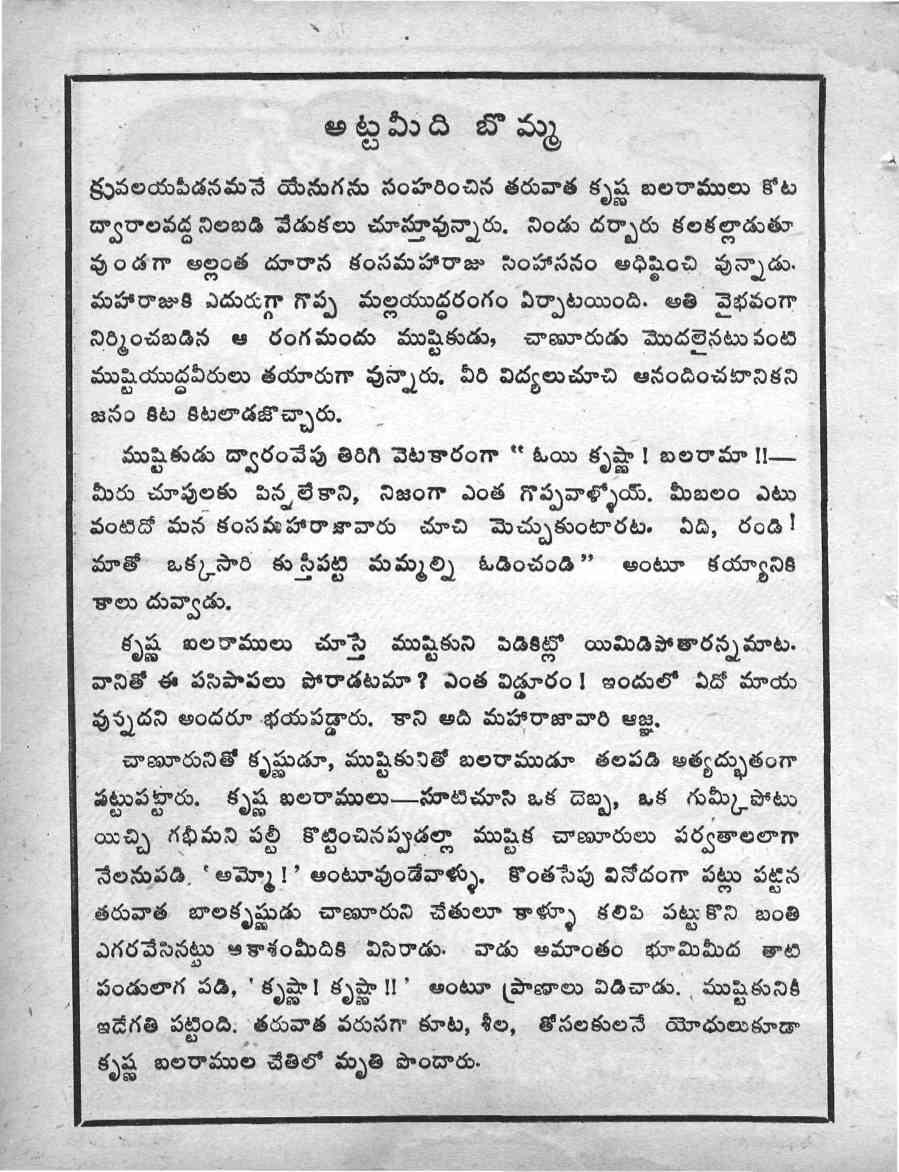 అట్టమీది బొమ్మ
కువలయపీడనమనే యేనుగను సంహరించిన తరువాత కృష్ణ బలరాములు కోట
ద్వారాలవద్ద నిలబడి వేడుకలు చూస్తూవున్నారు. నిండు దర్బారు కలకల్లాడుతూ
వుండగా అల్లంత దూరాన కంసమహారాజు సింహాసనం అధిష్టించి వున్నాడు.
మహారాజుకి ఎదురుగ్గా గొప్ప మల్లయుద్ధరంగం ఏర్పాటయింది. అతి వైభవంగా
నిర్మించబడిన ఆ రంగమందు ముష్టికుడు, చాణూరుడు మొదలైనటువంటి
ముష్టియుద్ధవీరులు తయారుగా వున్నారు. వీరి విద్యలుచూచి ఆనందించటానికని
జనం కిట కిటలాడజొచ్చారు.
ముష్టికుడు ద్వారంవేపు తిరిగి వెటకారంగా “ ఓయి కృష్ణా! బలరామా !!—
మీరు చూపులకు పిన్నలేకాని, నిజంగా ఎంత గొప్పవాళ్ళోయ్. మీబలం ఎటు
వంటిదో మన కంసమహారాజావారు చూచి మెచ్చుకుంటారట. ఏది, రండి!
మాతో ఒక్కసారి కుస్తీపట్టి మమ్మల్ని ఓడించండి” అంటూ కయ్యానికి
కాలు దువ్వాడు.
కృష్ణ బలరాములు చూస్తే ముష్టికుని పిడికిట్లో యిమిడిపోతారన్నమాట.
వానితో ఈ పసిపాపలు పోరాడటమా? ఎంత విడ్డూరం! ఇందులో ఏదో మాయ
వున్నదని అందరూ భయపడ్డారు. కాని అది మహారాజావారి ఆజ్ఞ.
చాణూరునితో కృష్ణుడూ, ముష్టికునితో బలరాముడూ తలపడి అత్యద్భుతంగా
పట్టుపట్టారు. కృష్ణ బలరాములు—సూటిచూసి ఒక దెబ్బ, ఒక గుమ్కీపోటు
యిచ్చి గభీమని పల్టీ కొట్టించినప్పుడల్లా ముష్టిక చాణూరులు పర్వతాలలాగా
నేలనుపడి, ‘అమ్మో!’ అంటూవుండేవాళ్ళు. కొంతసేపు వినోదంగా పట్లు పట్టిన
తరువాత బాలకృష్ణుడు చాణూరుని చేతులూ కాళ్ళూ కలిపి పట్టుకొని బంతి
ఎగరవేసినట్టు ఆకాశంమీదికి విసిరాడు. వాడు అమాంతం భూమిమీద తాటి
పండులాగ పడి, ‘కృష్ణా! కృష్ణా !!’ అంటూ ప్రాణాలు విడిచాడు. ముష్టికునికి
ఇదేగతి పట్టింది. తరువాత వరుసగా కూట, శీల, తోసలకులనే యోధులుకూడా
కృష్ణ బలరాముల చేతిలో మృతి పొందారు.